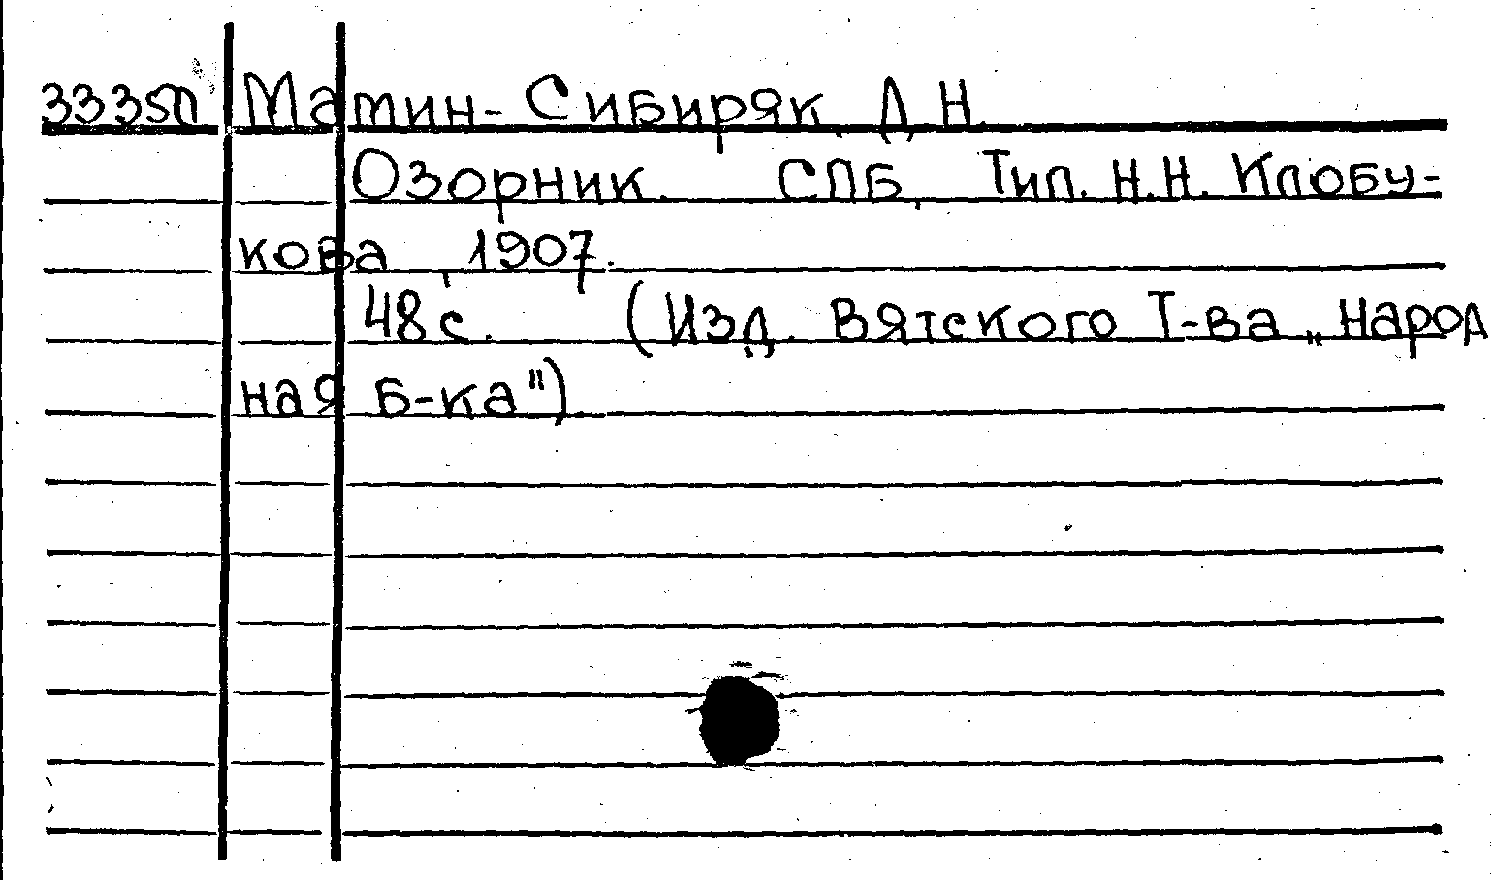 33350 Мамин-Сибиряк, Д. Н.
Озорник. СПБ, Тип. Н.Н. Клобу-
кова, 1907.
48 с. (Изд. Вятского Т-ва „Народ
ная Б-ка").